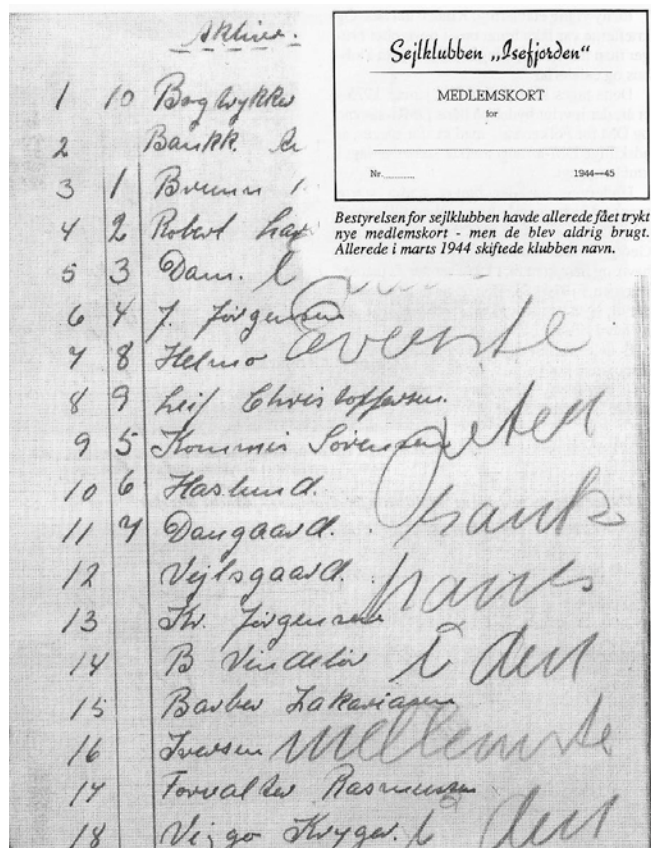 Aktive.
1 10 Bogtrykker
2 Bankk.
3 1 Bruun
4 2 Robert
5 3 Dam.
6 4 J. Jörgensen
7 8 Helmo
8 9 Leif Christoffersen.
9 5 Kommis Sörensen
10 6 Haslund.
11 7 Daugaard.
12 Vejlsgaard.
13 Kr. Jörgensen
14 B Vindelöv
15 Barber Zakariasen
16 Iversen
17 Forvalter Rasmussen
18 Viggo Kryger.
Sejlklubben „Isefjorden“
MEDLEMSKORT
for
Nr. 1944—45
Bestyrelsen for sejlklubben havde allerede fået trykt
nye medlemskort - men de blev aldrig brugt.
Allerede i marts 1944 skiftede klubben navn.
øverste
hans
i den
mellemste
i den